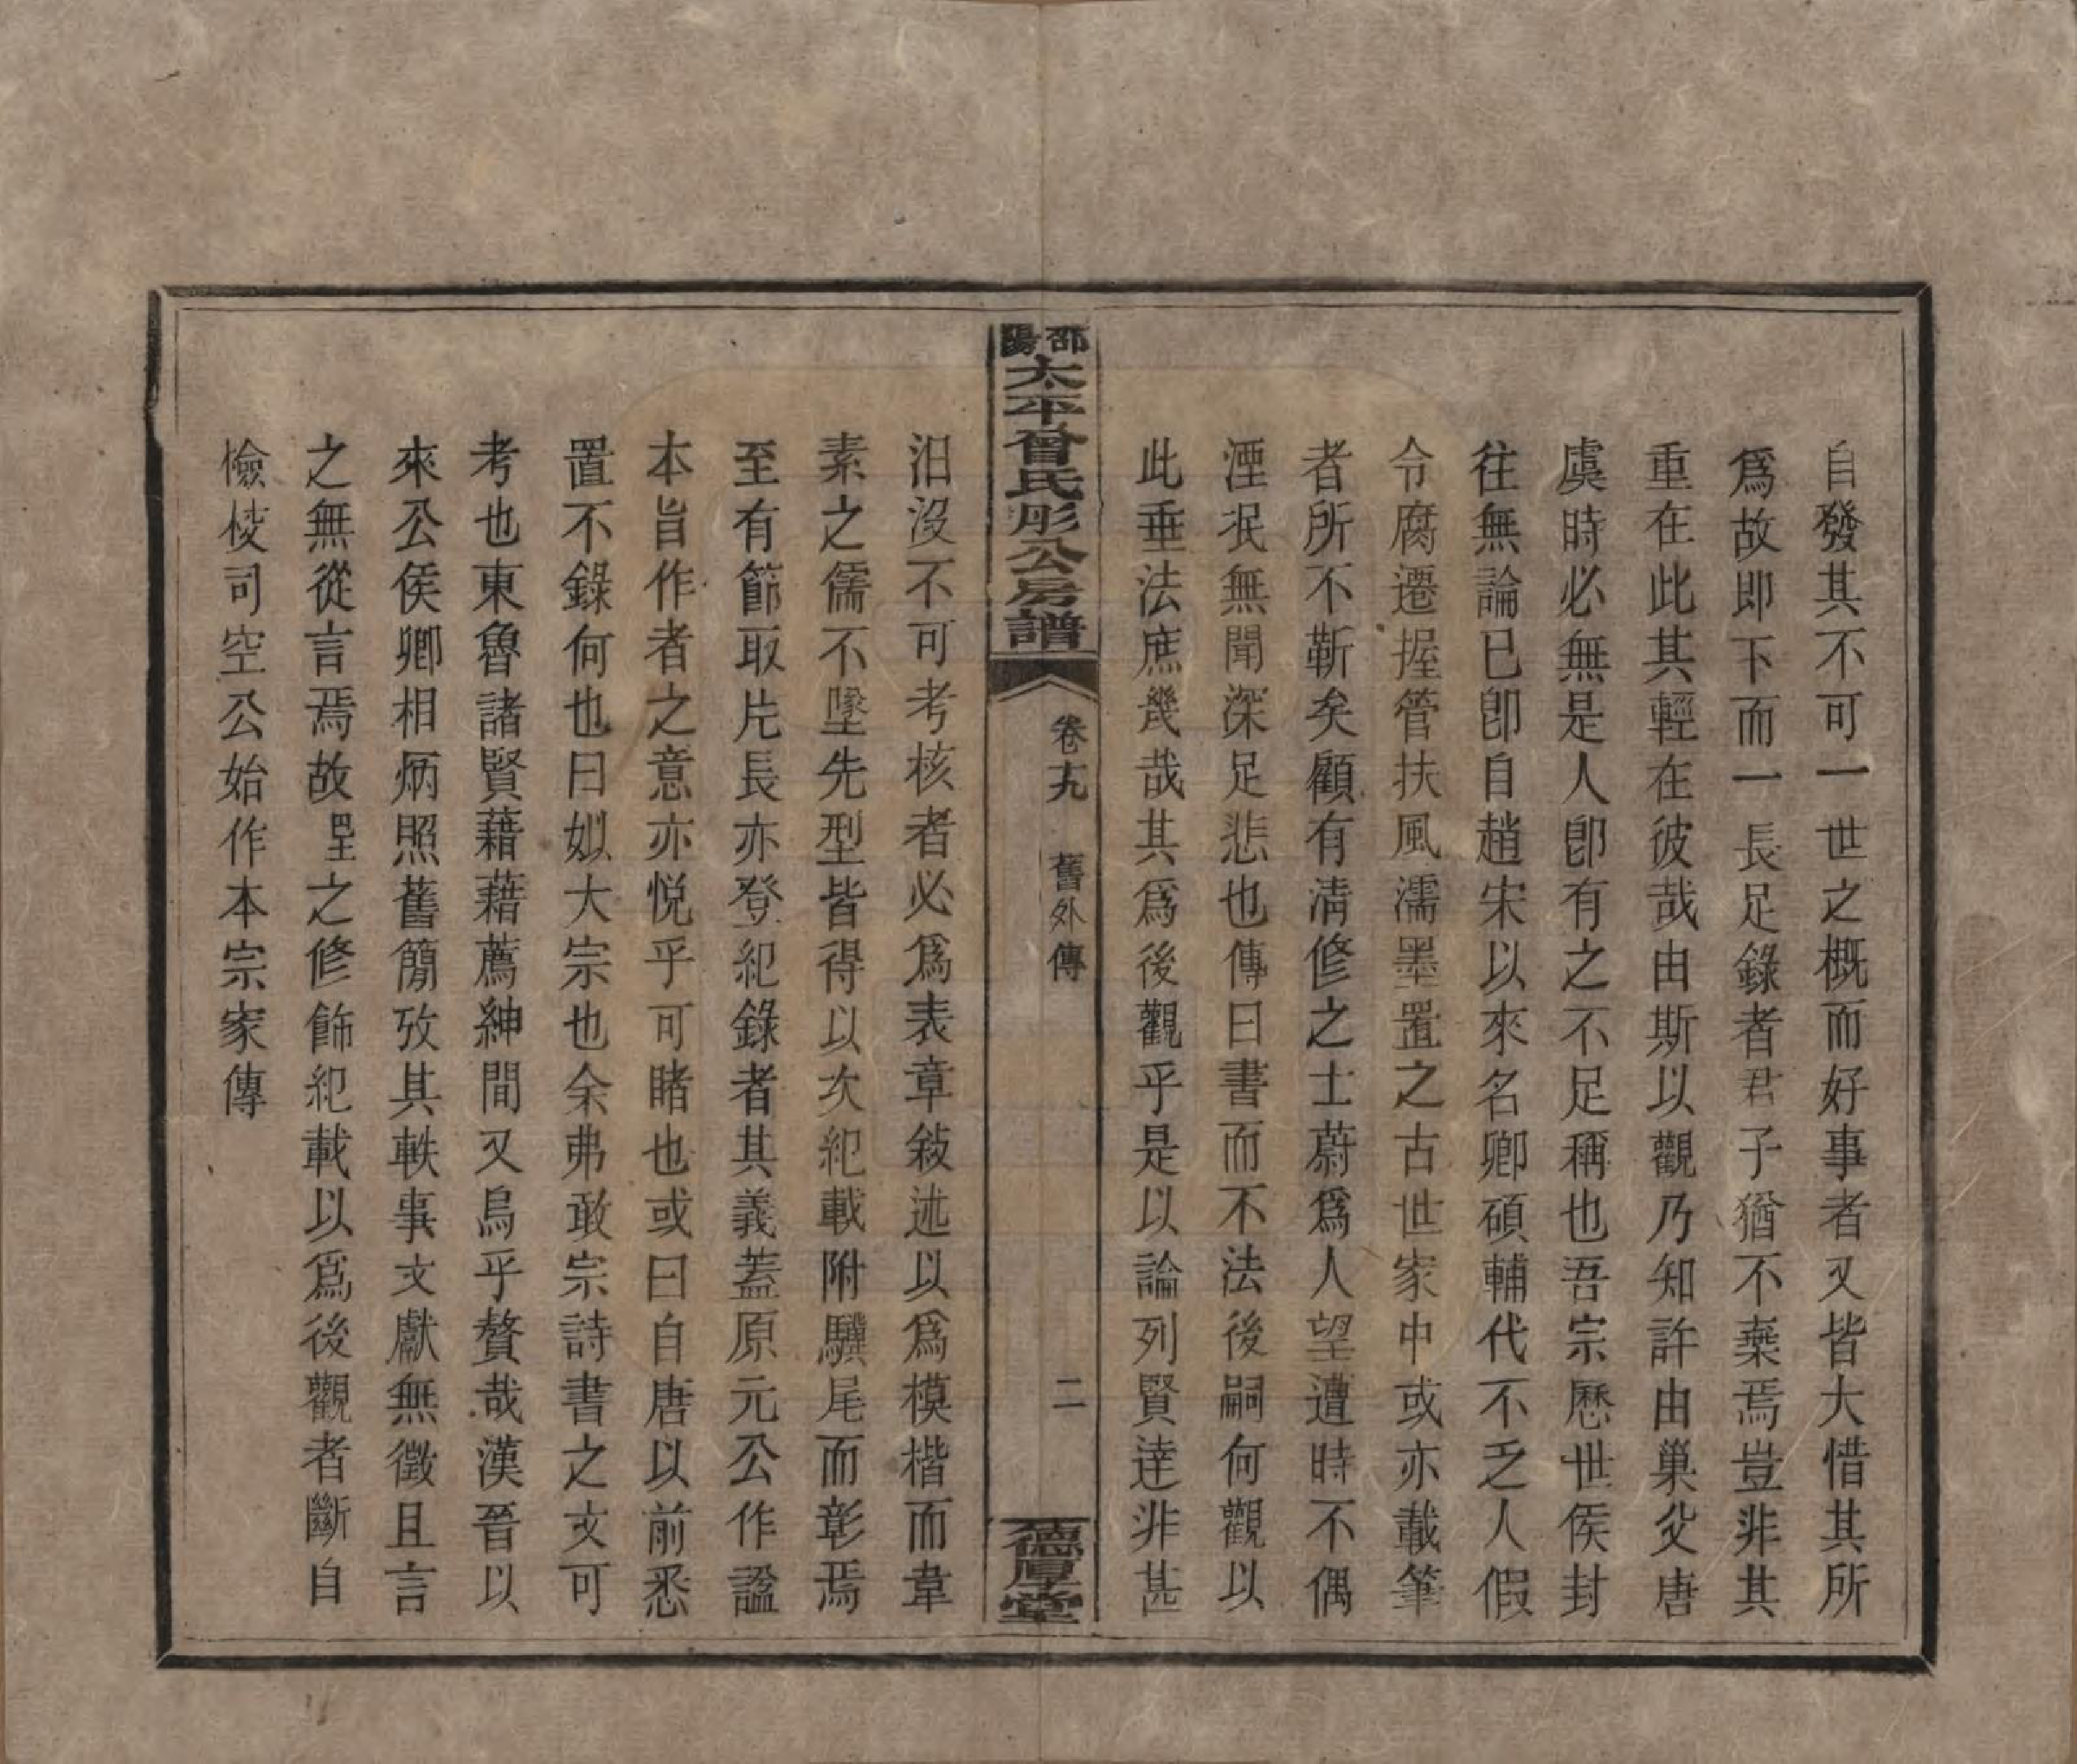 自發其不可一世之概而好事者又皆大惜其所
爲故即下而一長足錄者君子猶不棄焉豈非其
重在此其輕在彼哉由斯以觀乃知許由巢父唐
虞時必無是人卽有之不足稱也吾宗歷世侯封
往無論已卽自趙宋以來名卿碩輔代不乏人假
令腐遷握管扶風濡墨置之古世家中或亦載筆
者所不靳矣顧有淸修之士蔚爲人望遭時不偶
湮泯無聞深足悲也傳曰書而不法後嗣何觀以
此垂法庶幾哉其爲後觀乎是以論列賢達非甚
邵陽太平曾氏彤公房譜
卷十九 舊外傳
二
德厚堂
汨沒不可考核者必爲表章敍述以爲模楷而韋
素之儒不墜先型皆得以次紀載附驥尾而彰焉
至有節取片長亦登紀錄者其義蓋原元公作謚
本旨作者之意亦悅乎可睹也或曰自唐以前悉
置不錄何也曰姒大宗也余弗敢宗詩書之文可
考也東魯諸賢藉藉薦紳間又烏乎贅哉漢晉以
來公侯卿相炳照舊簡攷其軼事文獻無徵且言
之無從言焉故 之修飾紀載以爲後觀者斷自
檢校司空公始作本宗家傳